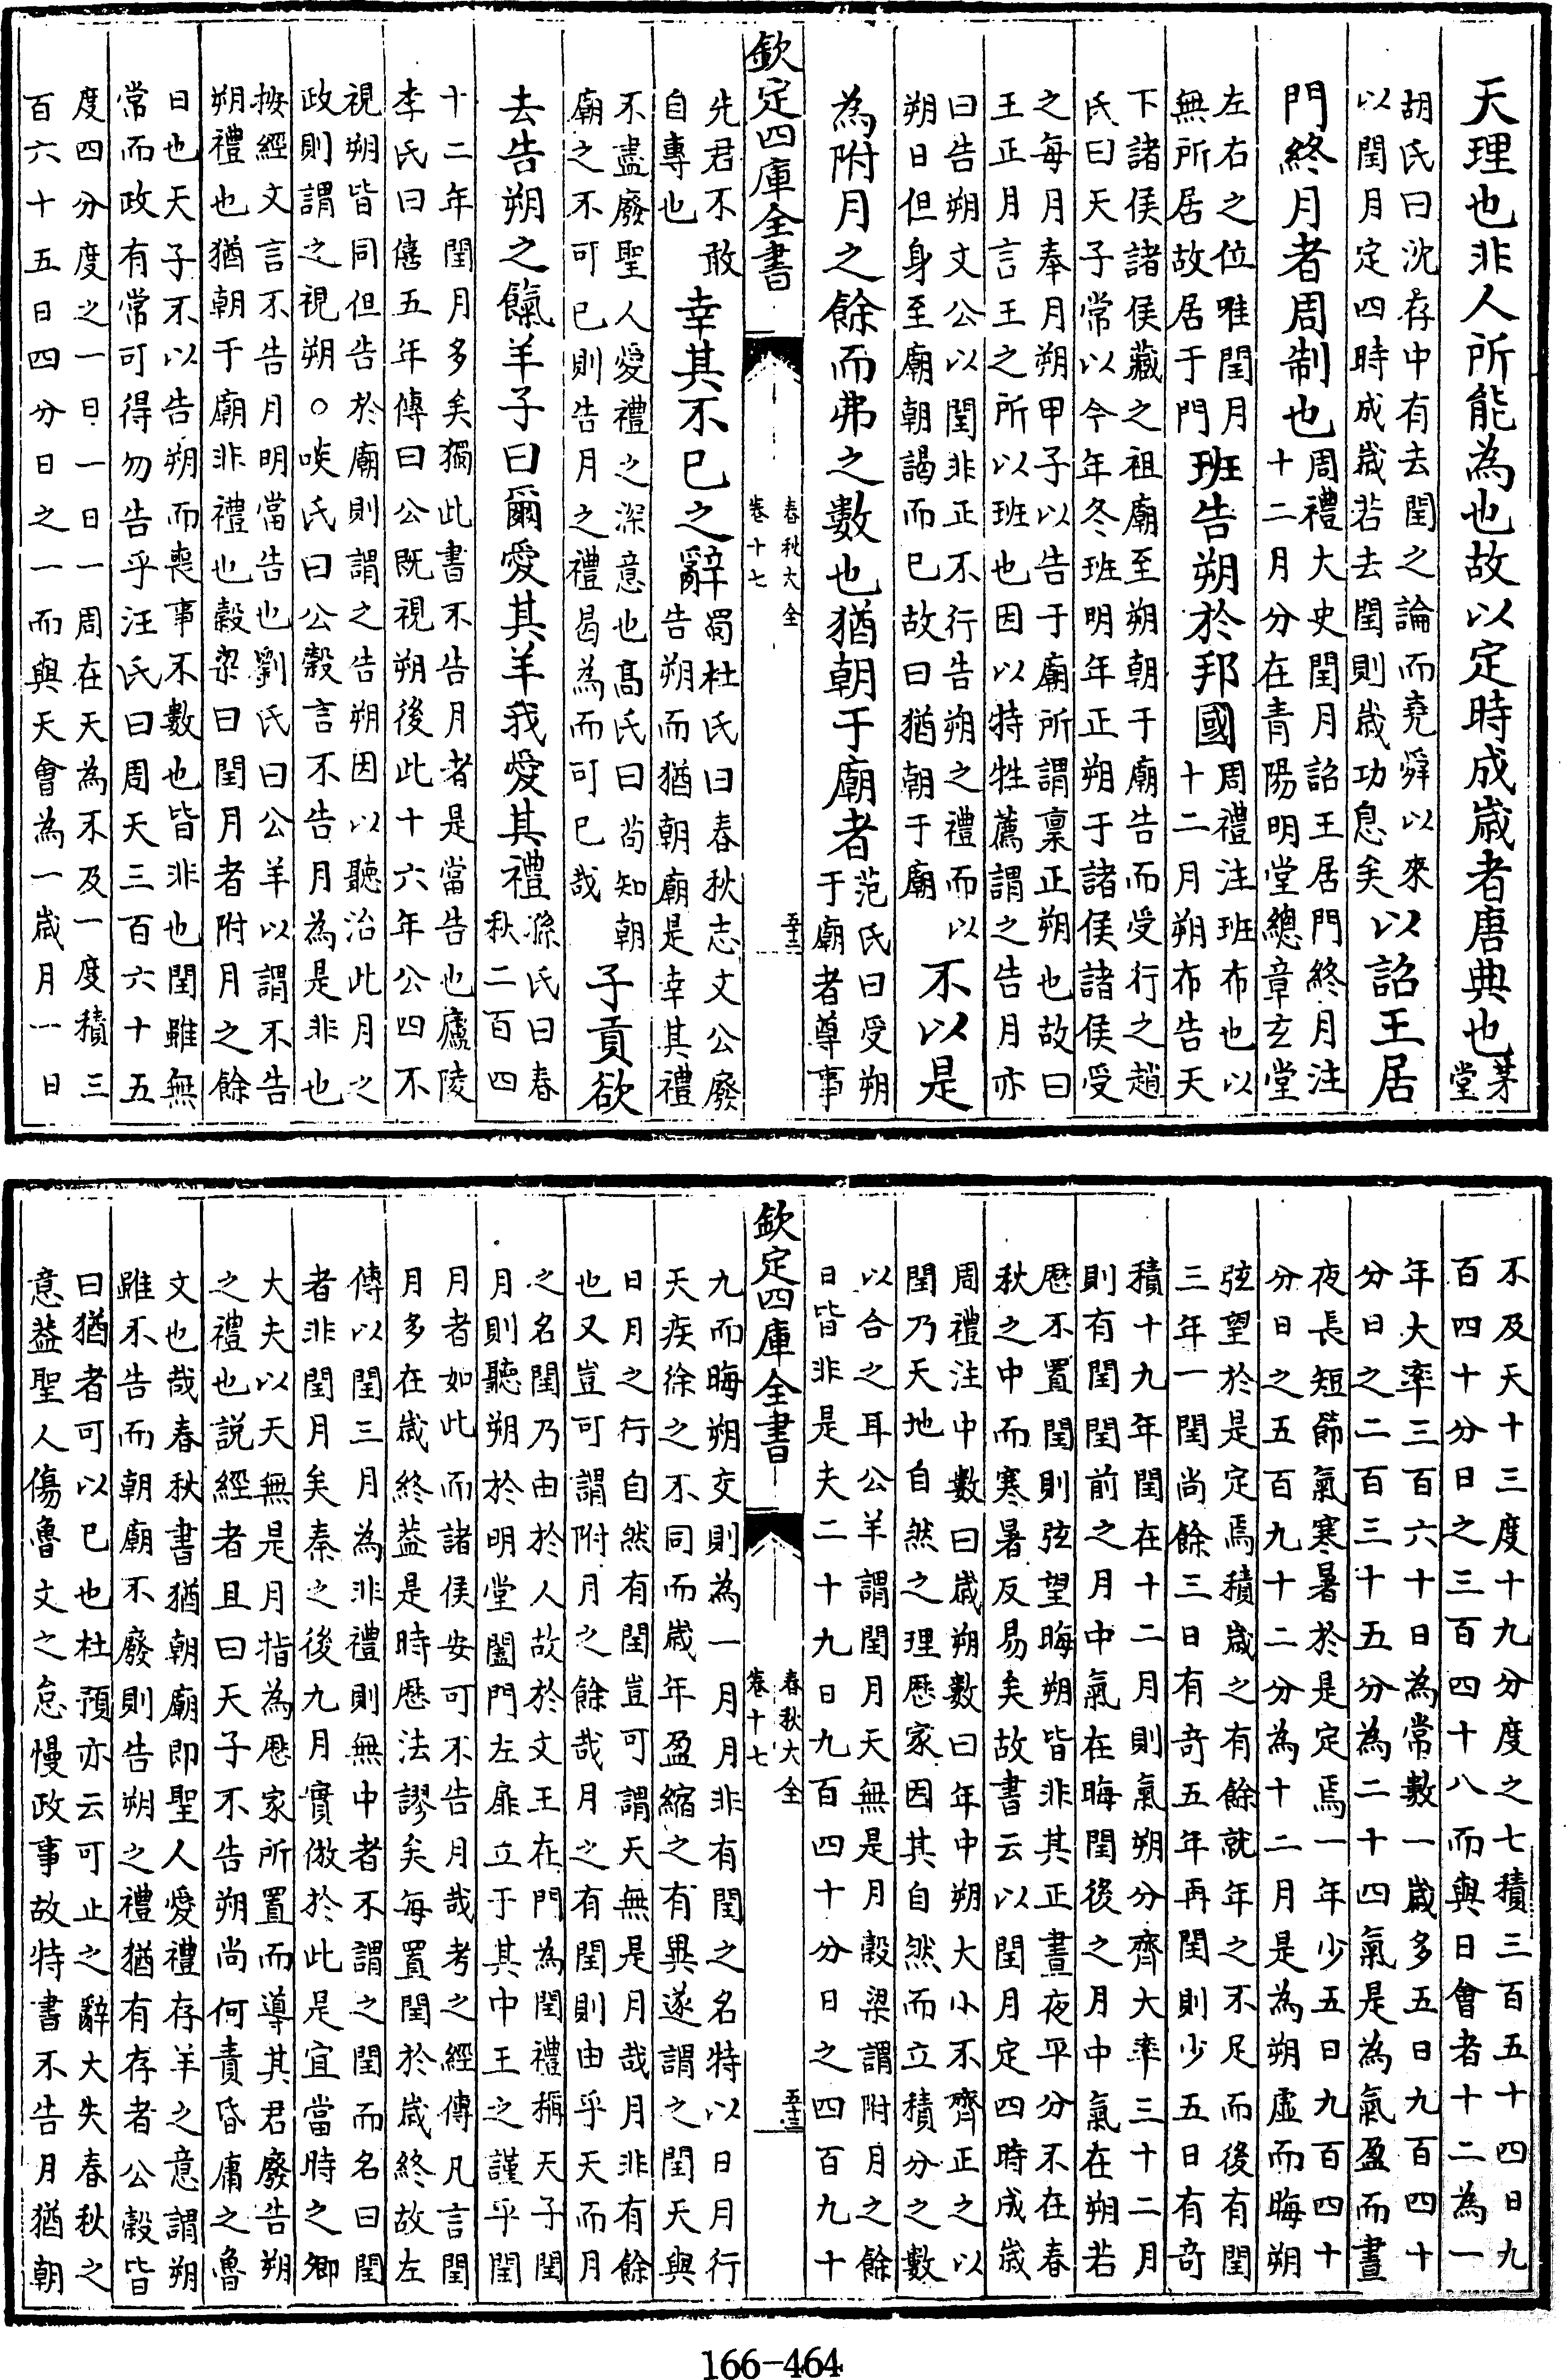 天理也非人所能為也故以定時成歲者唐典也茅
堂
胡氏曰沈存中有去閏之論而堯舜以來
以閏月定四時成歲若去閏則歲功息矣以詔王居
門終月者周制也周禮大史閏月詔王居門終月注
十二月分在青陽明堂總章玄堂
左右之位唯閏月
無所居故居于門班告朔於邦國周禮注班布也以
十二月朔布告天
下諸侯諸侯藏之祖廟至朔朝于廟告而受行之趙
氏曰天子常以今年冬班明年正朔于諸侯諸侯受
之每月奉月朔甲子以告于廟所謂稟正朔也故曰
王正月言王之所以班也因以特牲薦謂之告月亦
曰告朔文公以閏非正不行告朔之禮而以
朔日但身至廟朝謁而已故曰猶朝于廟不以是
為附月之餘而弗之數也猶朝于廟者范氏曰受朔
于廟者尊事
欽定四庫全書
春秋大全
卷十七
五十二
先君不敢
自專也幸其不已之辭蜀杜氏曰春秋志文公廢
告朔而猶朝廟是幸其禮
不盡廢聖人愛禮之深意也髙氏曰茍知朝
廟之不可已則告月之禮曷為而可已哉子貢欲
去告朔之餼羊子曰爾愛其羊我愛其禮孫氏曰春
秋二百四
十二年閏月多矣獨此書不告月者是當告也廬陵
李氏曰僖五年傳曰公既視朔後此十六年公四不
視朔皆同但告於廟則謂之告朔因以聽治此月之
政則謂之視朔○啖氏曰公榖言不告月為是非也
按經文言不告月明當告也劉氏曰公羊以謂不告
朔禮也猶朝于廟非禮也榖梁曰閏月者附月之餘
日也天子不以告朔而喪事不數也皆非也閏雖無
常而政有常可得勿告乎汪氏曰周天三百六十五
度四分度之一日一日一周在天為不及一度積三
百六十五日四分日之一而與天會為一歲月一日
不及天十三度十九分度之七積三百五十四日九
百四十分日之三百四十八而與日會者十二為一
年大率三百六十日為常數一歲多五日九百四十
分日之二百三十五分為二十四氣是為氣盈而晝
夜長短節氣寒暑於是定焉一年少五日九百四十
分日之五百九十二分為十二月是為朔虛而晦朔
弦望於是定焉積歲之有餘就年之不足而後有閏
三年一閏尚餘三日有奇五年再閏則少五日有奇
積十九年閏在十二月則氣朔分齊大率三十二月
則有閏閏前之月中氣在晦閏後之月中氣在朔若
厯不置閏則弦望晦朔皆非其正晝夜平分不在春
秋之中而寒暑反易矣故書云以閏月定四時成歲
周禮注中數曰歲朔數曰年中朔大小不齊正之以
閏乃天地自然之理厯家因其自然而立積分之數
以合之耳公羊謂閏月天無是月榖梁謂附月之餘
日皆非是夫二十九日九百四十分日之四百九十
欽定四庫全書
春秋大全
卷十七
五十三
九而晦朔交則為一月月非有閏之名特以日月行
天疾徐之不同而歲年盈縮之有異遂謂之閏天與
日月之行自然有閏豈可謂天無是月哉月非有餘
也又豈可謂附月之餘哉月之有閏則由乎天而月
之名閏乃由於人故於文王在門為閏禮稱天子閏
月則聽朔於明堂闔門左扉立于其中王之謹乎閏
月者如此而諸侯安可不告月哉考之經傳凡言閏
月多在歲終葢是時厯法謬矣每置閏於歲終故左
傳以閏三月為非禮則無中者不謂之閏而名曰閏
者非閏月矣秦之後九月實倣於此是宜當時之卿
大夫以天無是月指為厯家所置而導其君廢告朔
之禮也説經者且曰天子不告朔尚何責昏庸之魯
文也哉春秋書猶朝廟即聖人愛禮存羊之意謂朔
雖不告而朝廟不廢則告朔之禮猶有存者公榖皆
曰猶者可以已也杜預亦云可止之辭大失春秋之
意葢聖人傷魯文之怠慢政事故特書不告月猶朝
166-464